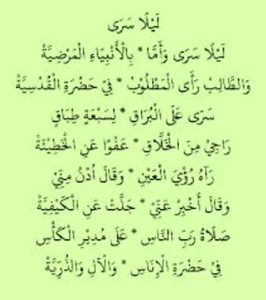 لَيْلًا سَرَى
لَيْلًا سَرَى وَأَمَّا * بِالْأَنْبِيَاءِ الْمَرْضِيَّةْ
وَالطَّالِبْ رَأَى الْمَطْلُوبْ * فِيْ حَضْرَةِ الْقُدْسِيَّةْ
سَرَى عَلَى الْبُرَاقِ * لِسَبْعَةٍ طِبَاقِ
رَاجِيْ مِنَ الْخَلَّاقِ * عَفْوًا عَنِ الْخَطِيْئَةْ
رَآهُ رُؤْيَ الْعَيْنِ * وَقَالَ اُدْنُ مِنِّيْ
وَقَالَ أَخْبِرْ عَنِّيْ * جَلَّتْ عَنِ الْكَيْفِيَّةْ
صَلَاةُ رَبِّ النَّاسِ * عَلَى مُدِيْرِ الْكَأْسِ
فِيْ حَضْرَةِ الْإِنَاسِ * وَالْآلِ وَالذُّرِّيَّةْ